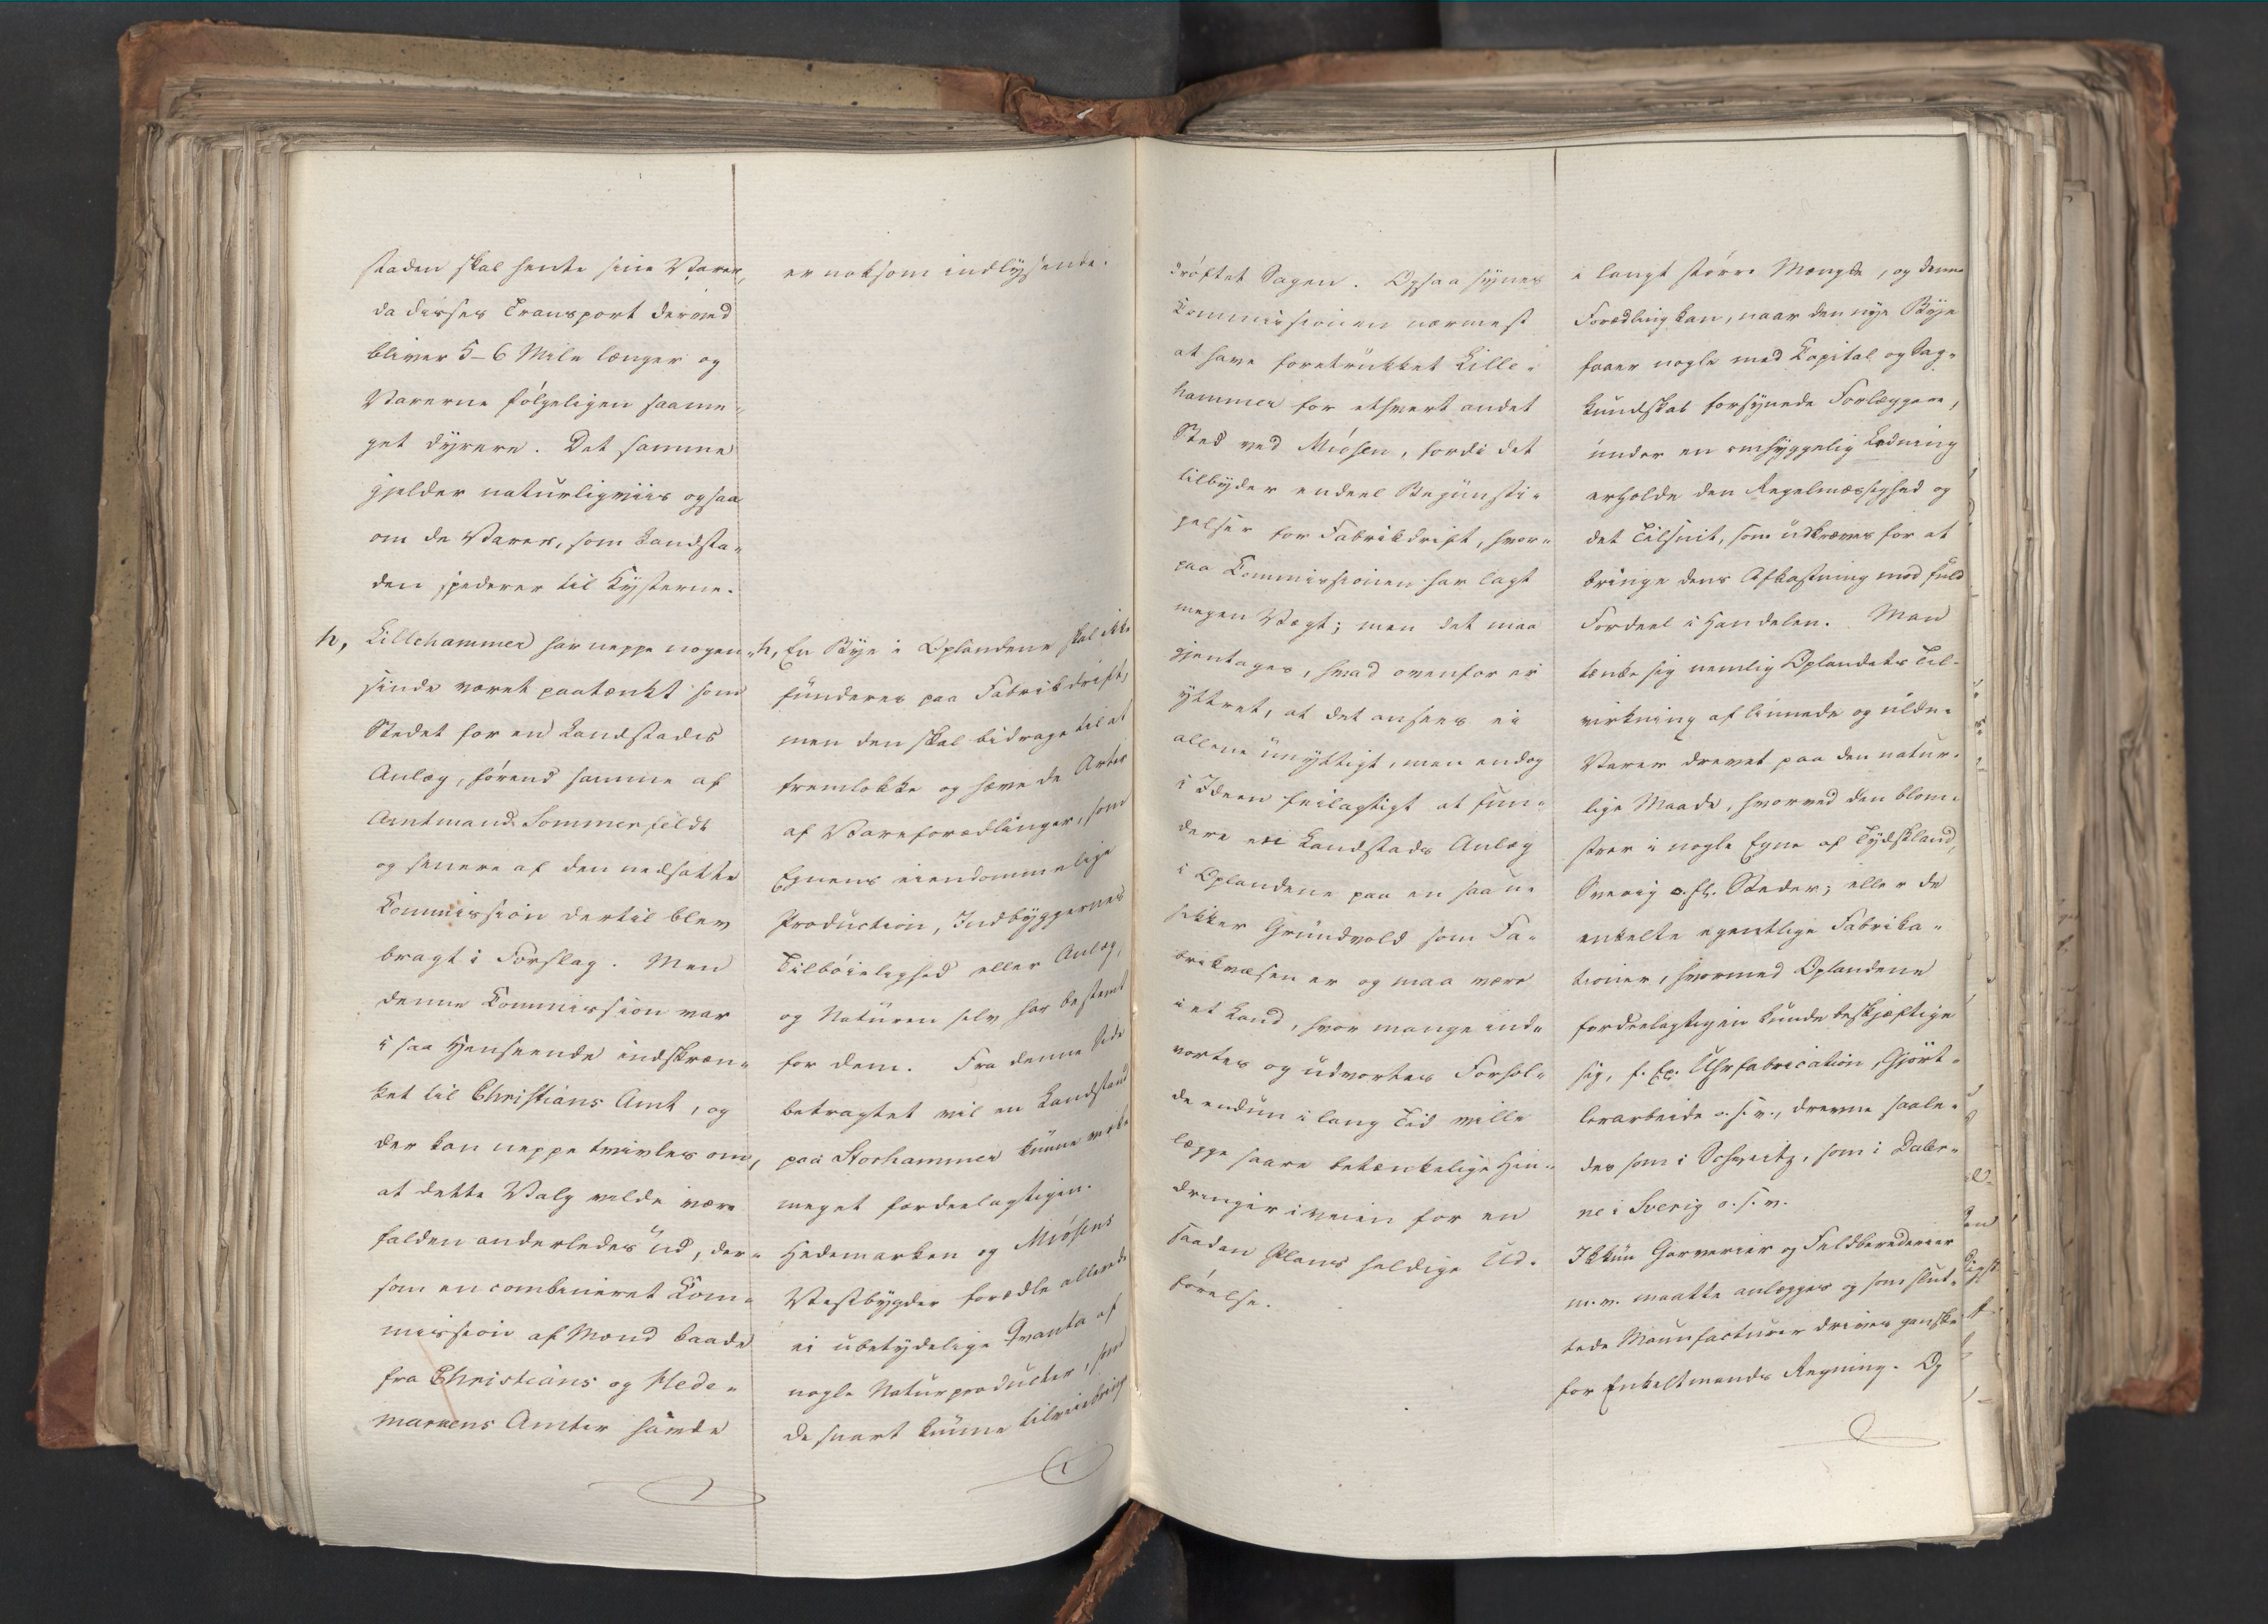 staden skal hente sine Varer,
da disses Transport derved
bliver 5-6 Mile længer og
Varerne følgeligen saame-
get dyrere. Det samme
gjelder naturligviis ogsaa
om de Varer, som Landsta-
den spederer til Kysterne.
h, Lillehammer har neppe nogen-
sinde været paatænkt som
Stedet for en Landstads
Anlæg, førend samme af
Amtmand Sommerfeldt
og senere af den nedsatte
Commission dertil blev
bragt i Forslag. Men
denne Commission var
i saa Henseende indskræn-
ket til Christians Amt, og
der kan neppe tvivles om,
at dette Valg vilde være
falden anderledes ud, der-
som en combineret Com-
mission af Mænd baade
fra Christians og Hede-
markens Amter havde
er noksom indlysende.
h, En Bye i Oplandene skal ikke
funderes paa Fabrikdrift,
men den skal bidrage til at
fremlokke og hæve de Arter
af Vareforædlinger, som
Egnens eiendommelige
Production, Indbyggernes
Tilbøielighed eller Anlæg,
og Naturen selv har bestemt
for dem. Fra denne Side
betragtet vil en Landstad
paa Storhammer kunne virke
meget fordeelagtigen.
Hedemarken og Miøsens
Vestbygder forædle allerede
ei ubetydelige Qvanta af
nogle Naturproducter, som
de snart kunne tilveiebringe
drøftet Sagen. Ogsaa synes
Commissionen nærmest
at have foretrukket Lille-
hammer for ethvert andet
Sted ved Miøsen, fordi det
tilbyder endeel Begunsti-
gelser for Fabrikdrift, hvor-
paa Commissionen har lagt
megen Vægt; men det maa
gjentages, hvad ovenfor er
yttret, at det ansees ei
allene unyttigt, men endog
i Ideen feilagtigt at fun-
dere en Landstads Anlæg
i Oplandene paa en saa u-
sikker Grundvold som Fa-
brikvæsen er og maa være
i et Land, hvor mange ind-
vortes og udvortes Forhol-
de endnu i lang Tid ville
lægge saare betænkelige Hin-
dringer iveien for en
saadan Plans heldige Ud-
førelse.
i langt større Mængde, og denne
Forædling kan, naar den nye Bye
faaer nogle med Capital og Sag-
kundskab forsynede Forlæggere,
under en omhyggelig Ledning
erholde den Regelmæssighed og
det Tilsnit, som udkræves for at
bringe dens Afkastning med fuld
Fordeel i Handelen. Man
tænke sig nemlig Oplandets Til-
virkning af linnede og uldne
Varer drevet paa den natur-
lige Maade, hvorved den blom-
strer i nogle Egne af Tydskland,
Sverig o. fl. Steder; eller de
enkelte egentlige Fabrika-
tioner, hvormed Oplandene
fordeelagtigen kunde beskjæftige
sig, f. Ex. Uhrfabrication, Gjørt-
lerarbeide o. s. v., drevne saale-
des som i Schweitz, som i Daler-
ne i Sverig o. s. v.
Ikkun Garverier og Feldberederier
m. v. maatte anlægges og som slut-
tede Manufacturer drives ganske
for Enkeltmands Regning. Og